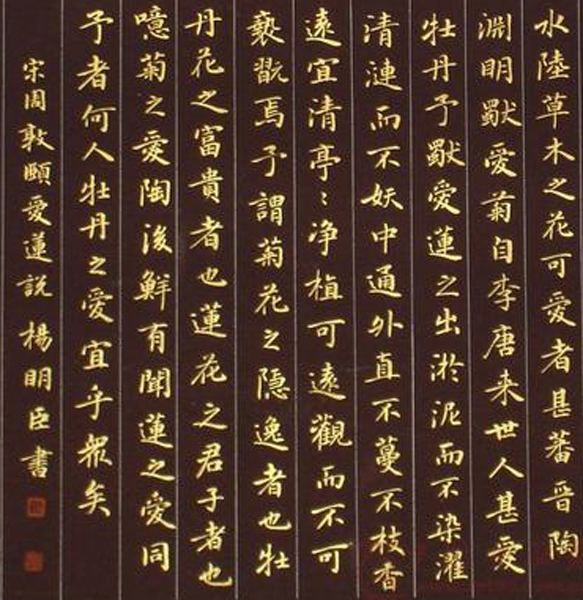 水陸草木之花可愛者甚蕃晉陶
淵明獨愛菊自李唐来世人甚愛
牡丹予獨愛蓮之出淤泥而不染濯
清漣而不妖中通外直不蔓不枝香
遠宜清亭〻净植可遠觀而不可
褻翫焉予謂菊花之隐逸者也牡
丹花之富貴者也蓮花之君子者也
噫菊之愛陶後鮮有聞蓮之愛同
予者何人牡丹之愛宜乎眾矣
宋周敦頤愛蓮説楊明臣書